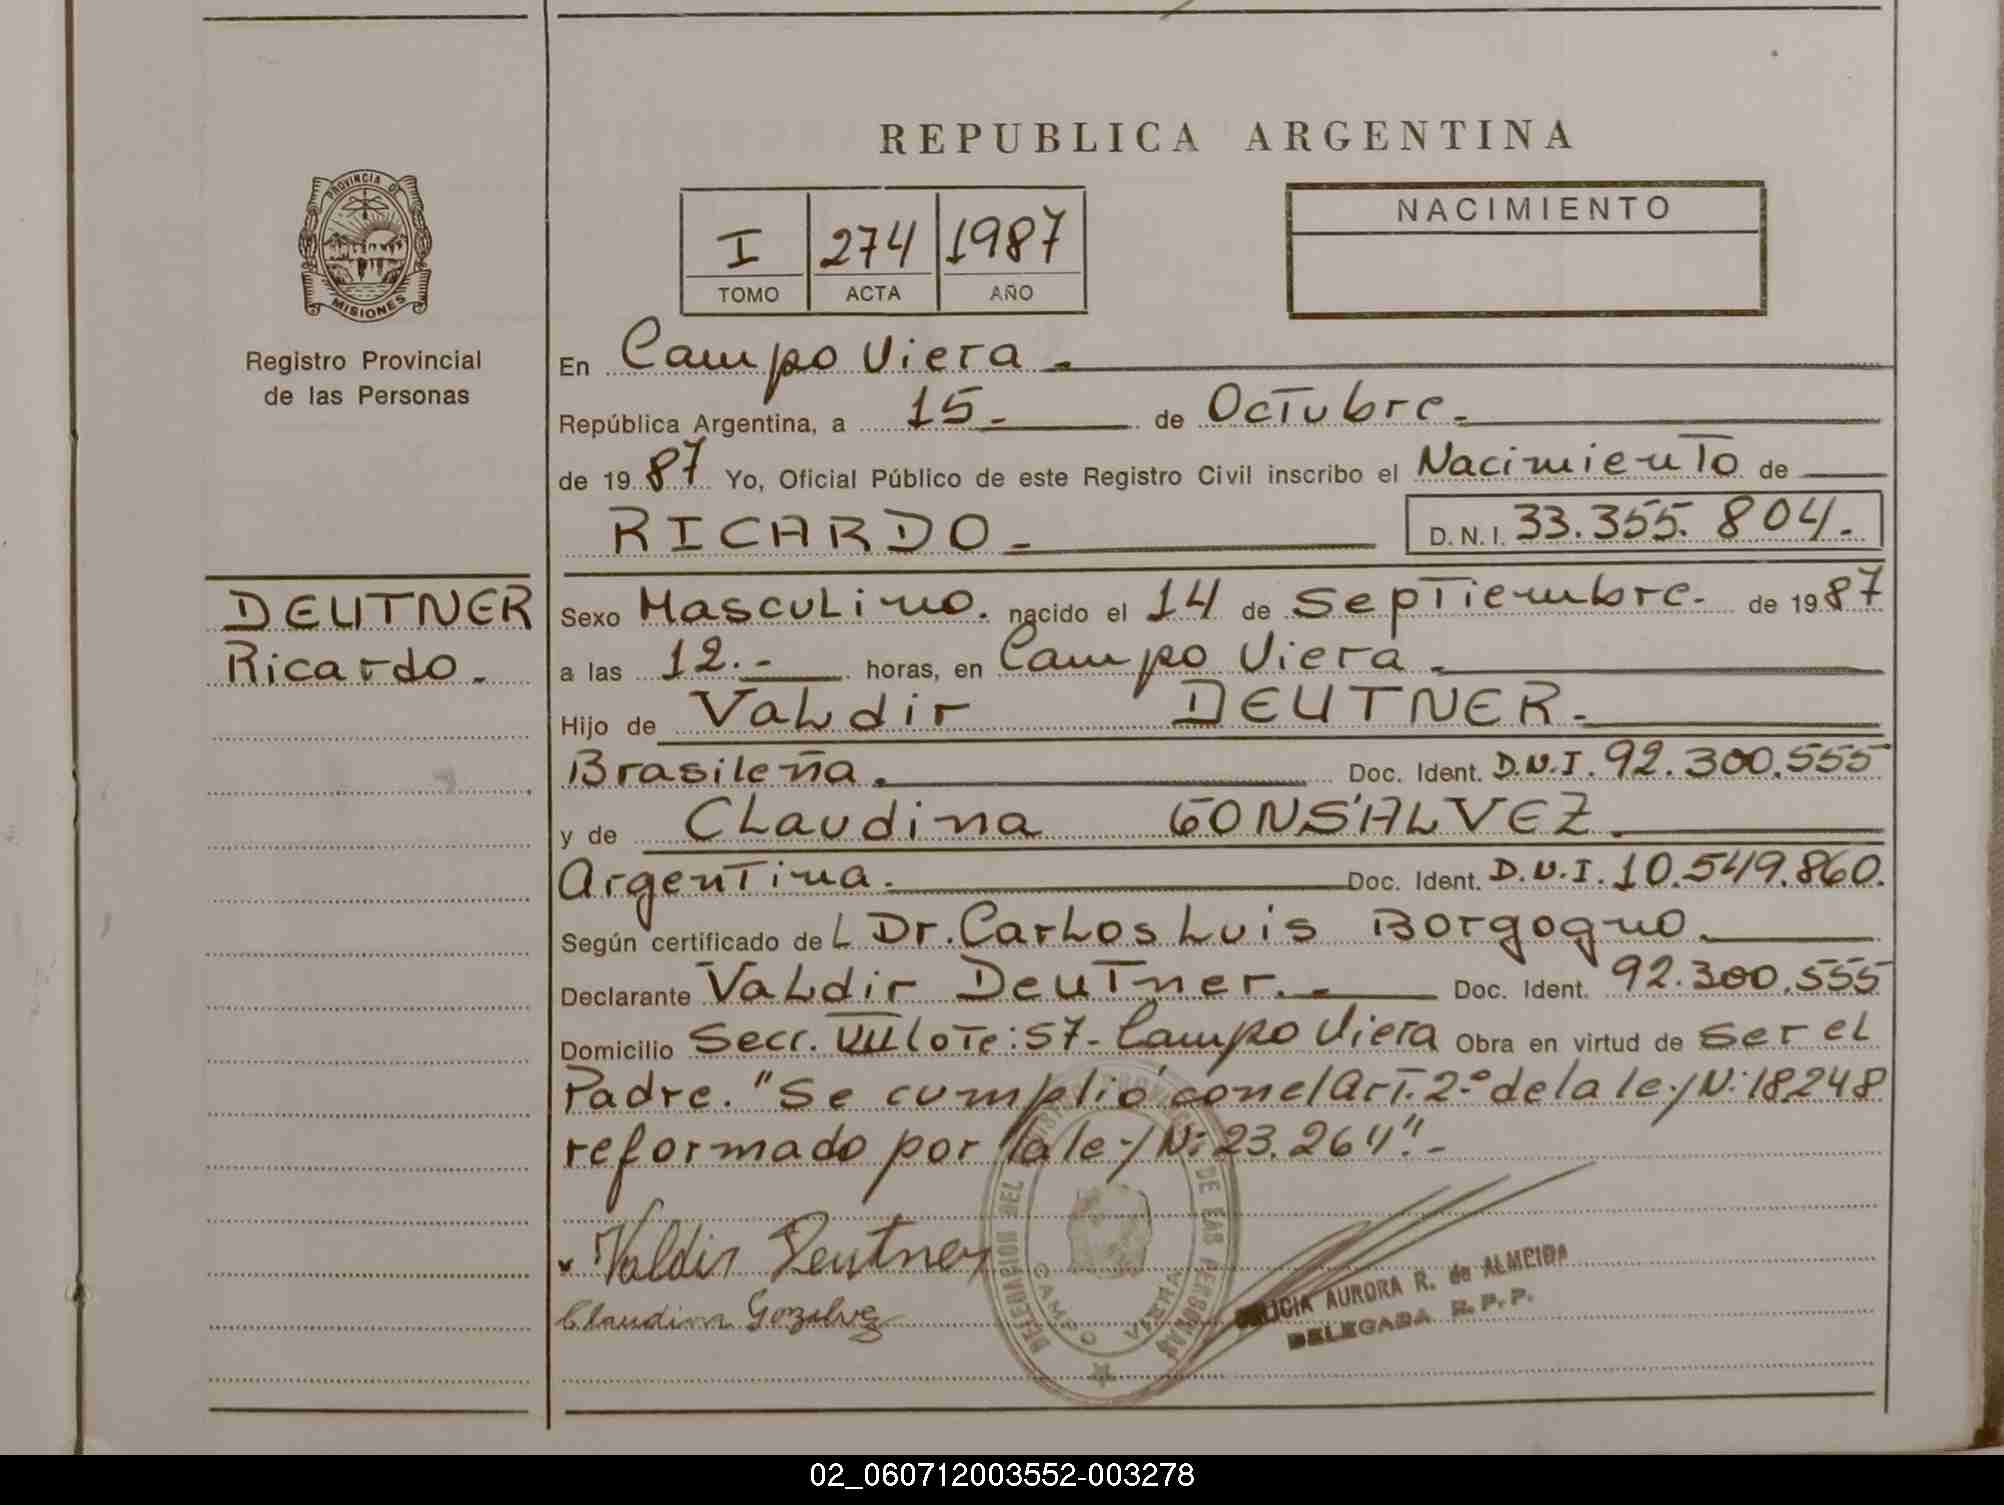 PROVINCIA DE
MISIONES
Registro Provincial
de las Personas
DEUTNER
Ricardo.
REPUBLICA ARGENTINA
I 274 1987
TOMO ACTA AÑO
NACIMIENTO
En Campo Viera
República Argentina, a 15 de Octubre
de 1987 Yo, Oficial Público de este Registro Civil inscribo el Nacimiento de
RICARDO
D. N. I. 33.355.804.
Sexo Masculino. nacido el 14 de Septiembre. de 1987
a las 12. horas, en Campo Viera
Hijo de Valdir DEUTNER
Brasileña. Doc. Ident. D.N.I. 92.300.555
y de Claudina GONSALVEZ
Argentina. Doc. Ident. D.N.I. 10.549.860.
Según certificado del Dr. Carlos Luis Borgogno
Declarante Valdir Deutner. Doc. Ident. 92.300.555
Domicilio Secc. VII Lote: 57- Campo Viera Obra en virtud de ser el
Padre. "Se cumplió con el Art. 2º de la ley N: 18248
reformado por la ley N: 23.264".-
Valdir Deutner
Claudina Gozalvez
DELEGACION DEL DE LAS PERSONAS
CAMPO VIERA
AURORA R. de ALMEIDA
DELEGADA R. P. P.
02_060712003552-003278